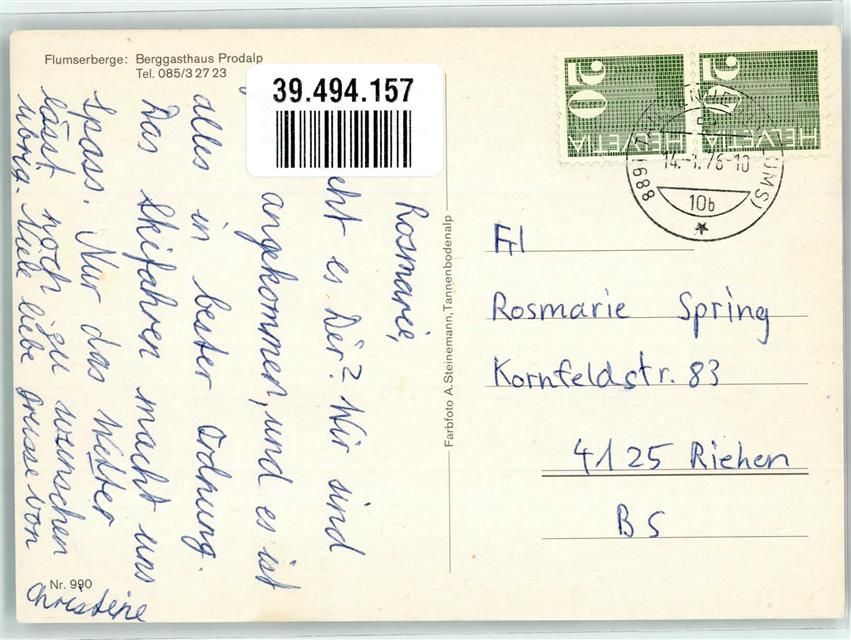 Flumserberge: Berggasthaus Prodalp
Tel. 085/3 27 23
39.494.157
Rosmarie,
cht es Dir? Wir sind
angekommen, und es ist
alles in bester Ordnung.
Das Skifahren macht uns
Spass. Nur das Wetter
lässt noch zu wünschen
übrig. Viele liebe Grüsse von
Christine
Nr. 990
Farbfoto A. Steinemann, Tannenbodenalp
20
HELVETIA
20
HELVETIA
14.-1.76-10
10b
Frl
Rosmarie Spring
Kornfeldstr. 83
4125 Riehen
BS